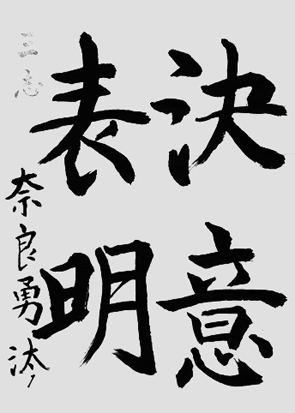 決意
表明
三志
奈良勇汰